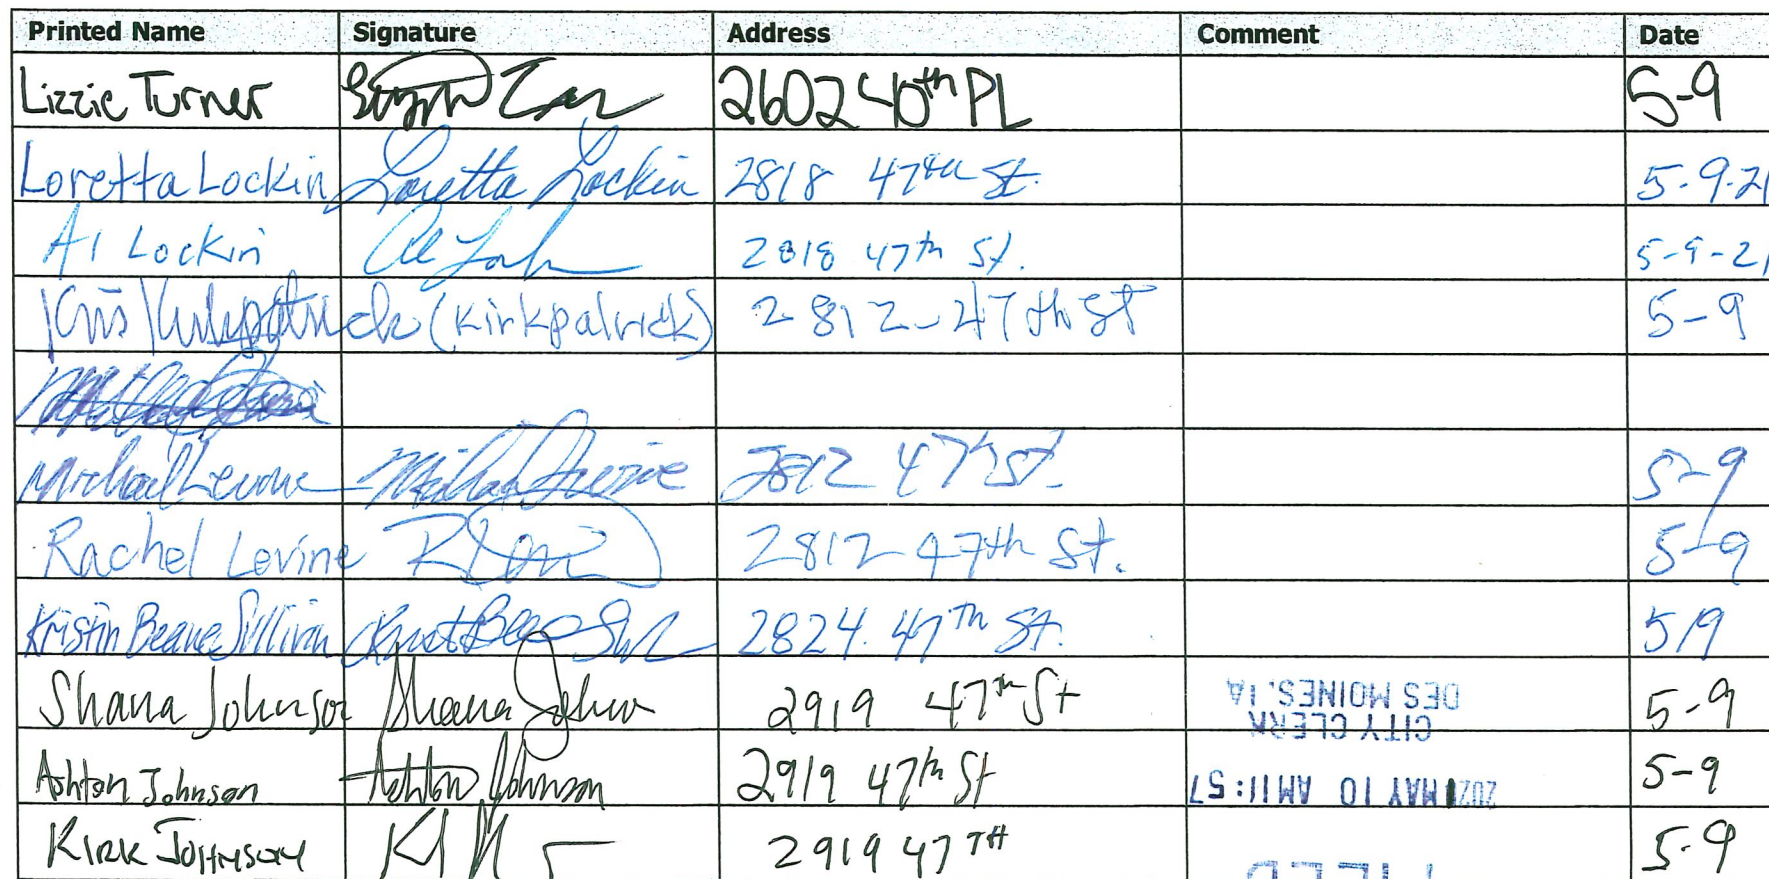 Printed Name Signature Address Comment Date
Lizzie Turner 2602 40th PL 5-9
Loretta Lockin Loretta Lockin 2818 47th St. 5-9-21
Al Lockin Al 2818 47th St. 5-9-21
Kris Kirkpatrick (Kirkpatrick) 2812-47th St 5-9
Michael Levine Michael Levine 2812 47th St. 5-9
Rachel Levine 2812 47th St. 5-9
Kristin Beane Sullivan 2824 47th St. 5/9
Shana Johnson Shana 2919 47th St 5-9
DES MOINES, IA
CITY CLERK
Ashton Johnson Ashton Johnson 2919 47th St 5-9
2021 MAY 10 AM 11:57
Kirk Johnson 2919 47TH 5-9
FILED